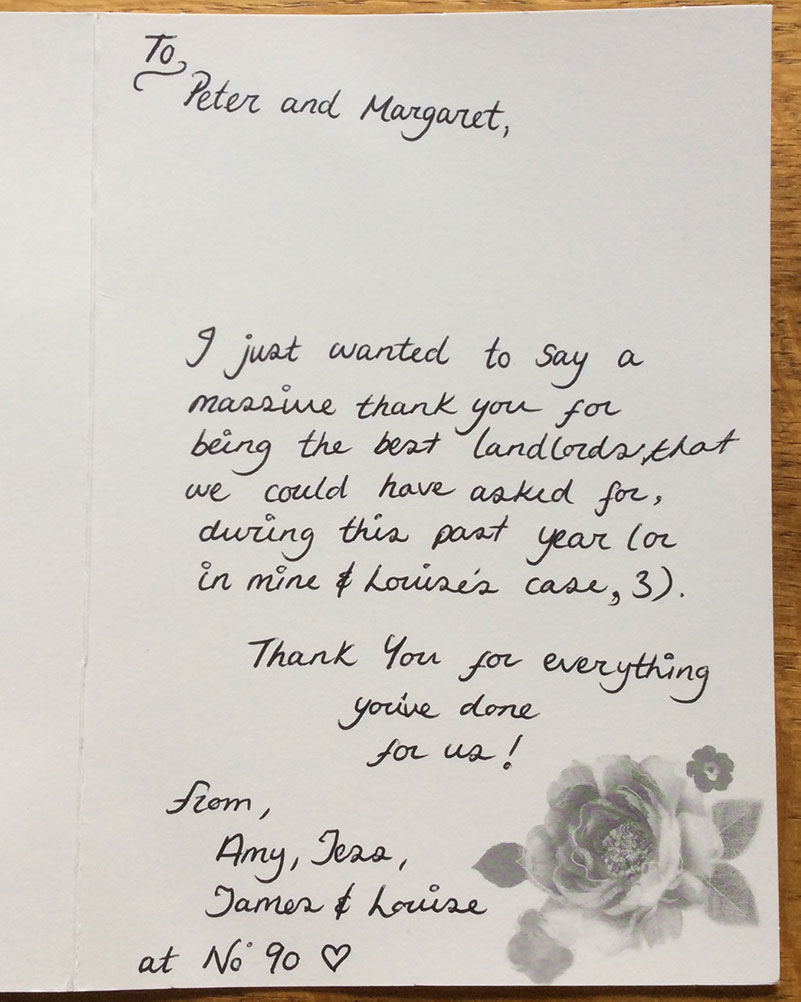 To
Peter and Margaret,
I just wanted to say a
massive thank you for
being the best landlords, that
we could have asked for,
during this past year (or
in mine & Louise's case, 3).
Thank You for everything
you've done
for us!
from,
Amy, Jess,
James & Louise
at No 90 ♡